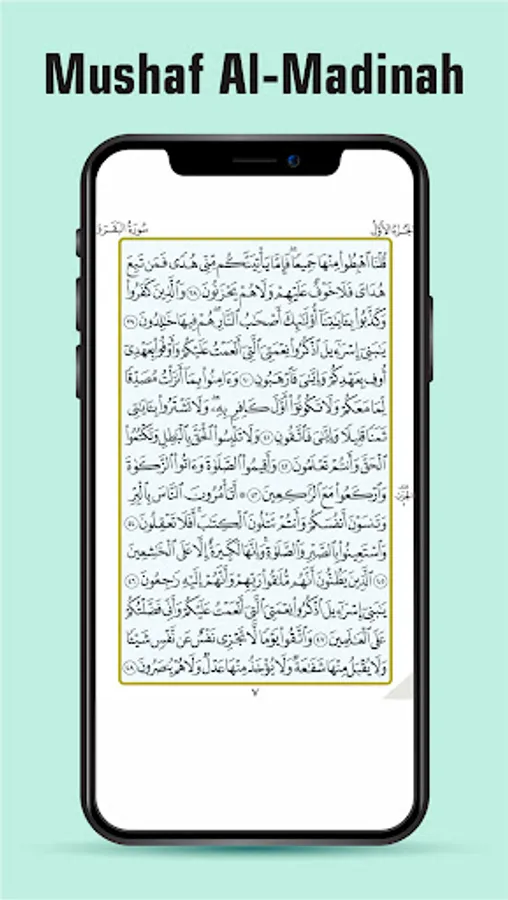 Mushaf Al-Madinah
سُورَةُ البَقَرَةِ
الجُزْءُ الأَوَّلُ
قُلْنَا ٱهْبِطُوا۟ مِنْهَا جَمِيعًۭا ۖ فَإِمَّا يَأْتِيَنَّكُم مِّنِّى هُدًۭى فَمَن تَبِعَ
هُدَاىَ فَلَا خَوْفٌ عَلَيْهِمْ وَلَا هُمْ يَحْزَنُونَ ٣٨ وَٱلَّذِينَ كَفَرُوا۟
وَكَذَّبُوا۟ بِـَٔايَـٰتِنَآ أُو۟لَـٰٓئِكَ أَصْحَـٰبُ ٱلنَّارِ ۖ هُمْ فِيهَا خَـٰلِدُونَ ٣٩
يَـٰبَنِىٓ إِسْرَٰٓءِيلَ ٱذْكُرُوا۟ نِعْمَتِىَ ٱلَّتِىٓ أَنْعَمْتُ عَلَيْكُمْ وَأَوْفُوا۟ بِعَهْدِىٓ
أُوفِ بِعَهْدِكُمْ وَإِيَّـٰىَ فَٱرْهَبُونِ ٤٠ وَءَامِنُوا۟ بِمَآ أَنزَلْتُ مُصَدِّقًۭا
لِّمَا مَعَكُمْ وَلَا تَكُونُوٓا۟ أَوَّلَ كَافِرٍۭ بِهِۦ ۖ وَلَا تَشْتَرُوا۟ بِـَٔايَـٰتِى
ثَمَنًۭا قَلِيلًۭا وَإِيَّـٰىَ فَٱتَّقُونِ ٤١ وَلَا تَلْبِسُوا۟ ٱلْحَقَّ بِٱلْبَـٰطِلِ وَتَكْتُمُوا۟
ٱلْحَقَّ وَأَنتُمْ تَعْلَمُونَ ٤٢ وَأَقِيمُوا۟ ٱلصَّلَوٰةَ وَءَاتُوا۟ ٱلزَّكَوٰةَ
وَٱرْكَعُوا۟ مَعَ ٱلرَّٰكِعِينَ ٤٣ ۞ أَتَأْمُرُونَ ٱلنَّاسَ بِٱلْبِرِّ
وَتَنسَوْنَ أَنفُسَكُمْ وَأَنتُمْ تَتْلُونَ ٱلْكِتَـٰبَ ۚ أَفَلَا تَعْقِلُونَ ٤٤
وَٱسْتَعِينُوا۟ بِٱلصَّبْرِ وَٱلصَّلَوٰةِ ۚ وَإِنَّهَا لَكَبِيرَةٌ إِلَّا عَلَى ٱلْخَـٰشِعِينَ
٤٥ ٱلَّذِينَ يَظُنُّونَ أَنَّهُم مُّلَـٰقُوا۟ رَبِّهِمْ وَأَنَّهُمْ إِلَيْهِ رَٰجِعُونَ ٤٦
يَـٰبَنِىٓ إِسْرَٰٓءِيلَ ٱذْكُرُوا۟ نِعْمَتِىَ ٱلَّتِىٓ أَنْعَمْتُ عَلَيْكُمْ وَأَنِّى فَضَّلْتُكُمْ
عَلَى ٱلْعَـٰلَمِينَ ٤٧ وَٱتَّقُوا۟ يَوْمًۭا لَّا تَجْزِى نَفْسٌ عَن نَّفْسٍۢ شَيْـًۭٔا
وَلَا يُقْبَلُ مِنْهَا شَفَـٰعَةٌۭ وَلَا يُؤْخَذُ مِنْهَا عَدْلٌۭ وَلَا هُمْ يُنصَرُونَ ٤٨
٧